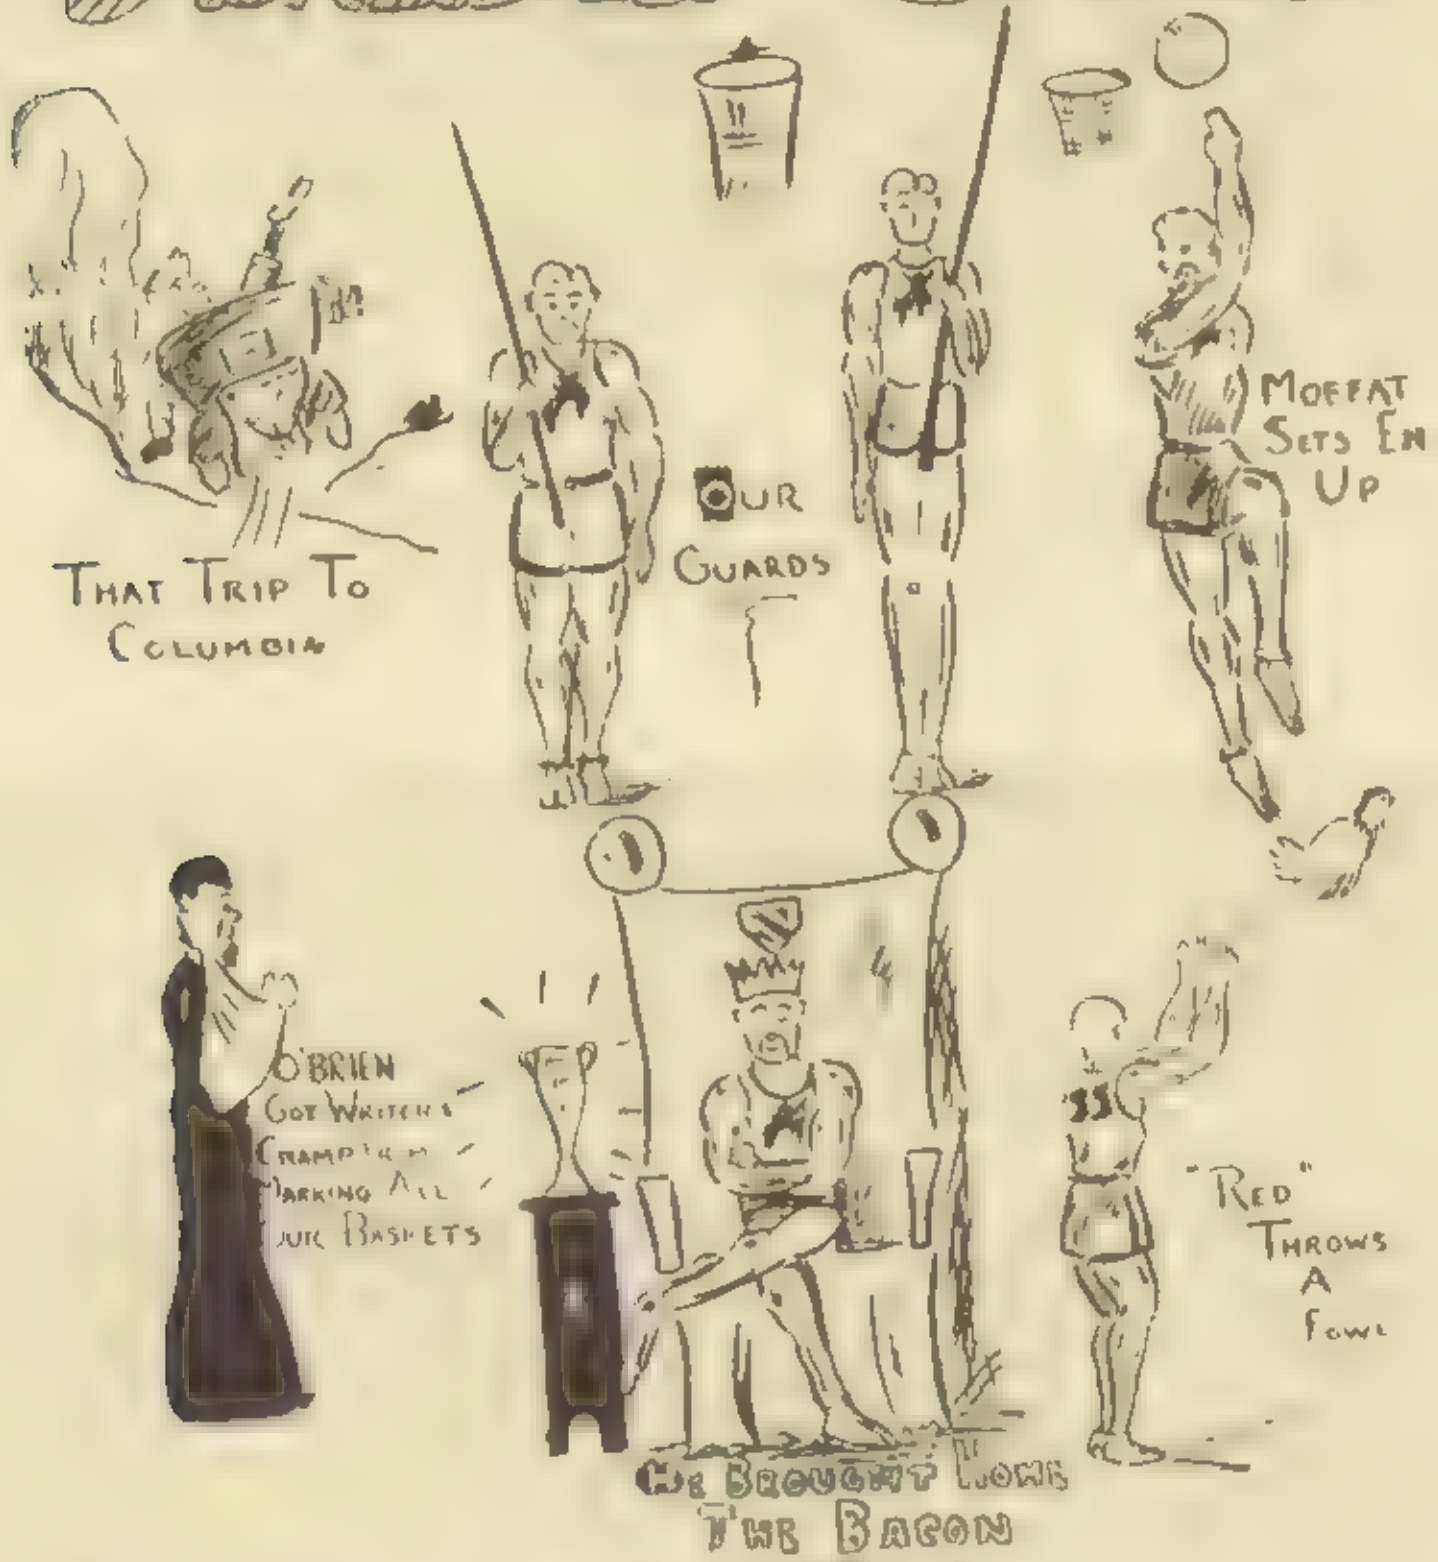 THAT TRIP TO
COLUMBIA
OUR
GUARDS
MOFFAT
SETS EM
UP
O'BRIEN
GOT WRITERS
CRAMP FROM
MARKING ALL
OUR BASKETS
"RED"
THROWS
A
FOWL
HE BROUGHT HOME
THE BACON